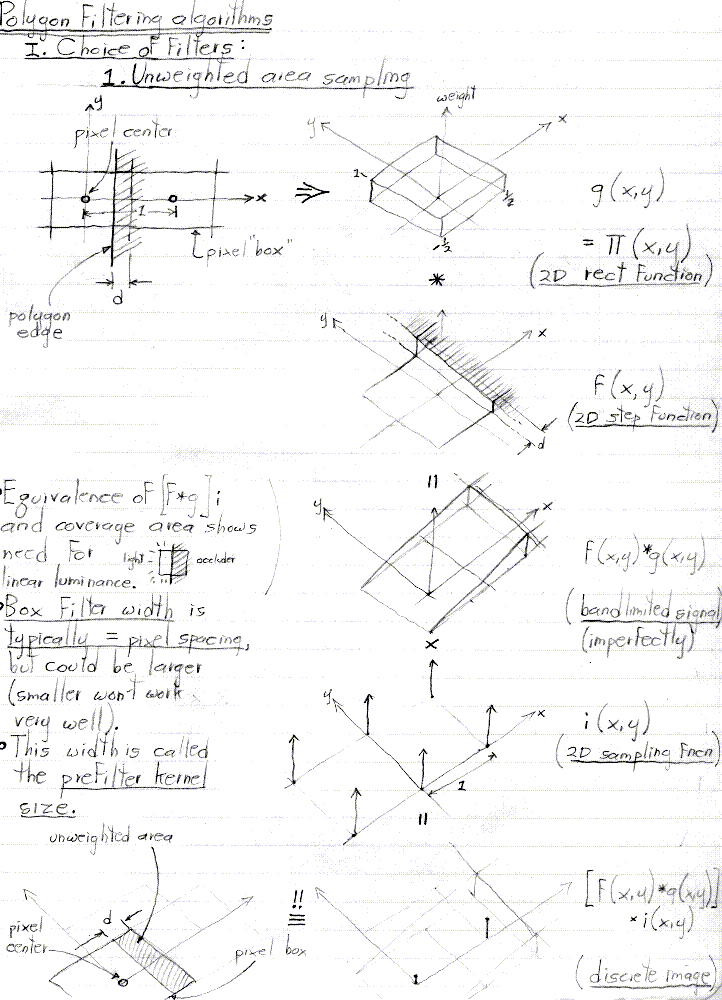 Polygon Filtering algorithms
I. Choice of Filters:
1. Unweighted area sampling
y
pixel center
x
1
pixel "box"
d
polygon
edge
⇒
weight
y
x
1
1/2
-1/2
g(x,y)
= Π(x,y)
(2D rect Function)
*
y
x
d
F(x,y)
(2D step Function)
• Equivalence of [F*g]i
and coverage area shows
need for
light occluder
linear luminance.
• Box Filter width is
typically = pixel spacing,
but could be larger
(smaller won't work
very well).
• This width is called
the prefilter kernel
size.
=
y
x
F(x,y)*g(x,y)
(bandlimited signal)
(imperfectly)
×
y
x
1
i(x,y)
(2D sampling Fncn)
=
unweighted area
d
pixel
center
pixel box
!!
≡
1
[F(x,y)*g(x,y)]
× i(x,y)
(discrete image)